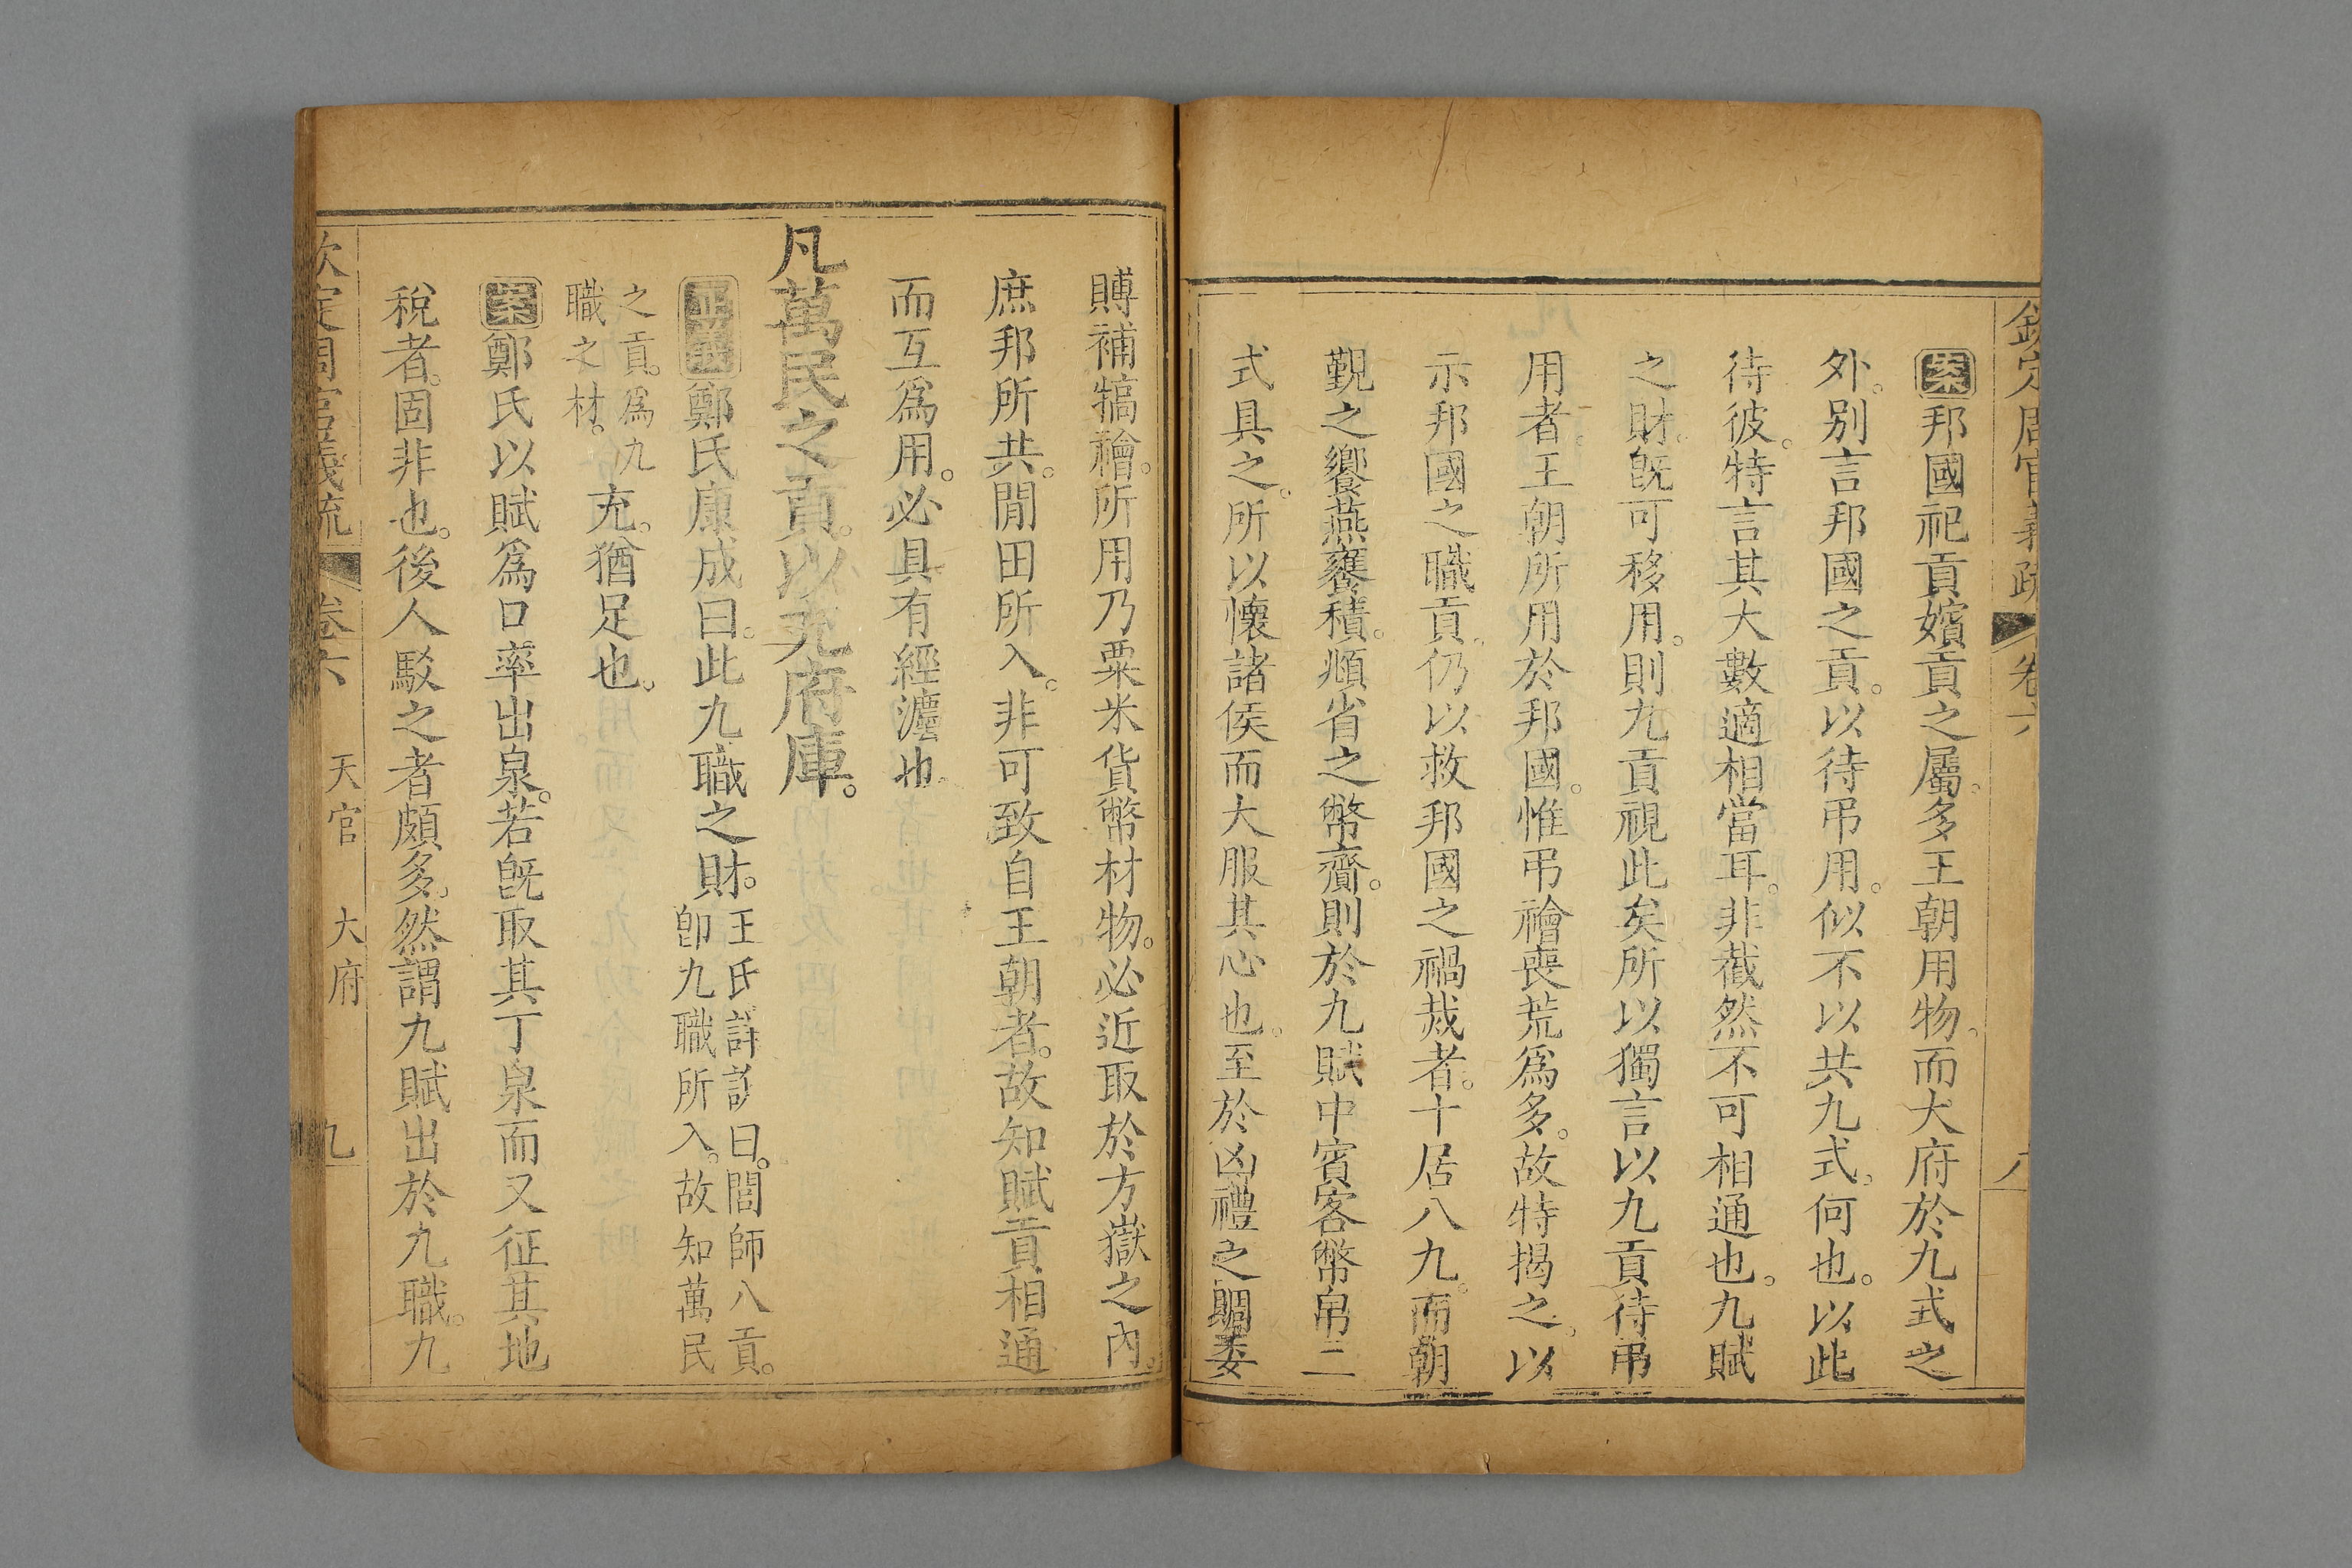 欽定周官義疏 卷六 八
案邦國祀貢嬪貢之屬。多王朝用物。而大府於九式之
外。別言邦國之貢。以待弔用。似不以共九式。何也。以此
待彼。特言其大數適相當耳。非截然不可相通也。九賦
之財。旣可移用。則九貢視此矣所以獨言以九貢待弔
用者。王朝所用於邦國。惟弔禬喪荒爲多。故特揭之。以
示邦國之職貢。仍以救邦國之禍烖者。十居八九。而朝
覲之饗燕饔積。頫省之幣齎。則於九賦中賓客幣帛二
式具之。所以懷諸侯而大服其心也。至於凶禮之賙委
賻補犒禬。所用乃粟米貨幣材物。必近取於方嶽之內。
庶邦所共。閒田所入。非可致自王朝者。故知賦貢相通
而互爲用。必具有經灋也
凡萬民之貢。以充府庫。
正義鄭氏康成曰。此九職之財。王氏詳說曰。閭師八貢。
卽九職所入。故知萬民
之貢。爲九
職之材。充。猶足也。
案鄭氏以賦爲口率出泉。若旣取其丁泉而又征其地
稅者。固非也。後人駁之者頗多。然謂九賦出於九職。九
欽定周官義疏 卷六 天官 大府 九